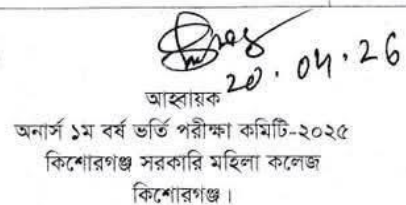 20.04.26
আহ্বায়ক
অনার্স ১ম বর্ষ ভর্তি পরীক্ষা কমিটি-২০২৫
কিশোরগঞ্জ সরকারি মহিলা কলেজ
কিশোরগঞ্জ।